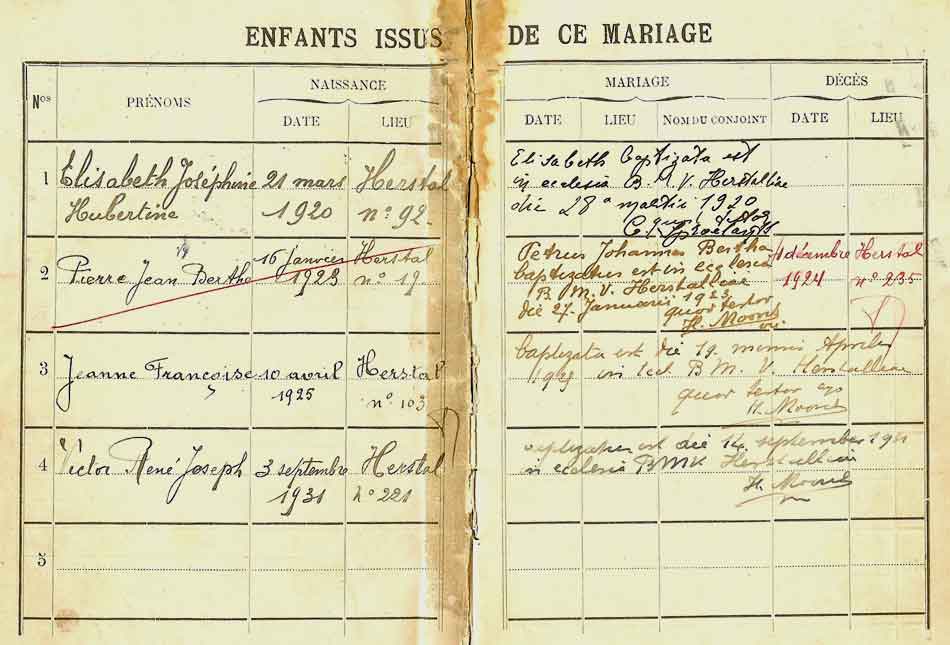 ENFANTS ISSUS DE CE MARIAGE
Nos
PRÉNOMS
NAISSANCE
DATE
LIEU
MARIAGE
DATE
LIEU
NOM DU CONJOINT
DÉCÈS
DATE
LIEU
1
Elisabeth Joséphine 21 mars Herstal
Hubertine 1920 n° 92
Elisabeth baptizata est
in ecclesia B. M. V. Herstalliae
die 28a 1920
2
Pierre Jean Berthe 16 janvier Herstal
1923 n° 19
Petrus Johannes Bertha
baptizatus est in ecclesia
B. M. V. Herstalliae
die 27. Januarii 1923
quor testor
H. Moord
décembre Herstal
1924 n° 235
3
Jeanne Françoise 10 avril Herstal
1925 n° 103
baptizata est die 19 mensis Aprilis
in B M. V. Herstalliae
quor testor ego
H. Moord
4
Victor René Joseph 3 septembre Herstal
1931 N° 221
baptizatus est die 14 september
in ecclesia
H. Moord
5